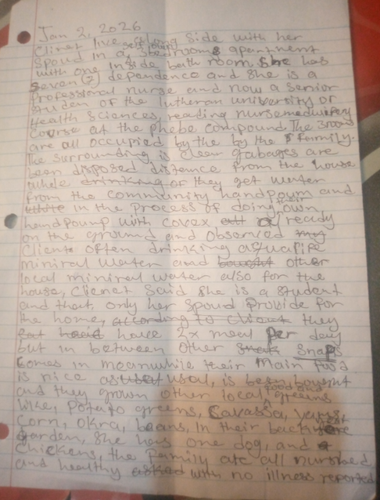 Jan 2, 2026
Clinet live along side with her
Spoud in a 3 bedrooms apartment
with one inside bath room. She has
Seven (7) dependence and she is a
Professional nurse and now a senior
Studen of the lutheran university of
Health Sciences, reading nurse
Course at the phebe compound. The 3 room
are all occupied by the by the family.
The surrounding is clean gabages are
been disposed distance from the house
while drinking or they get water
from the community handpoum and
in the process of doing own
handpump with covex all already
on the ground and observed my
Cliente often drinking aqualife
miniral water and bought other
local miniral water also for the
house, Clienet Said she is a student
and that only her spoud provide for
the home, according to client they
have 2 meal per day
but in between other snak snaps
comes in meanwhile their main food
is rice as usual, is been bought
and they grown other local greens
like, potato greens, Cavassa, yams,
corn, okra, beans. In their back
Garden. She has one dog, and
chickens, the family are all
and healthy asked with no illness reported